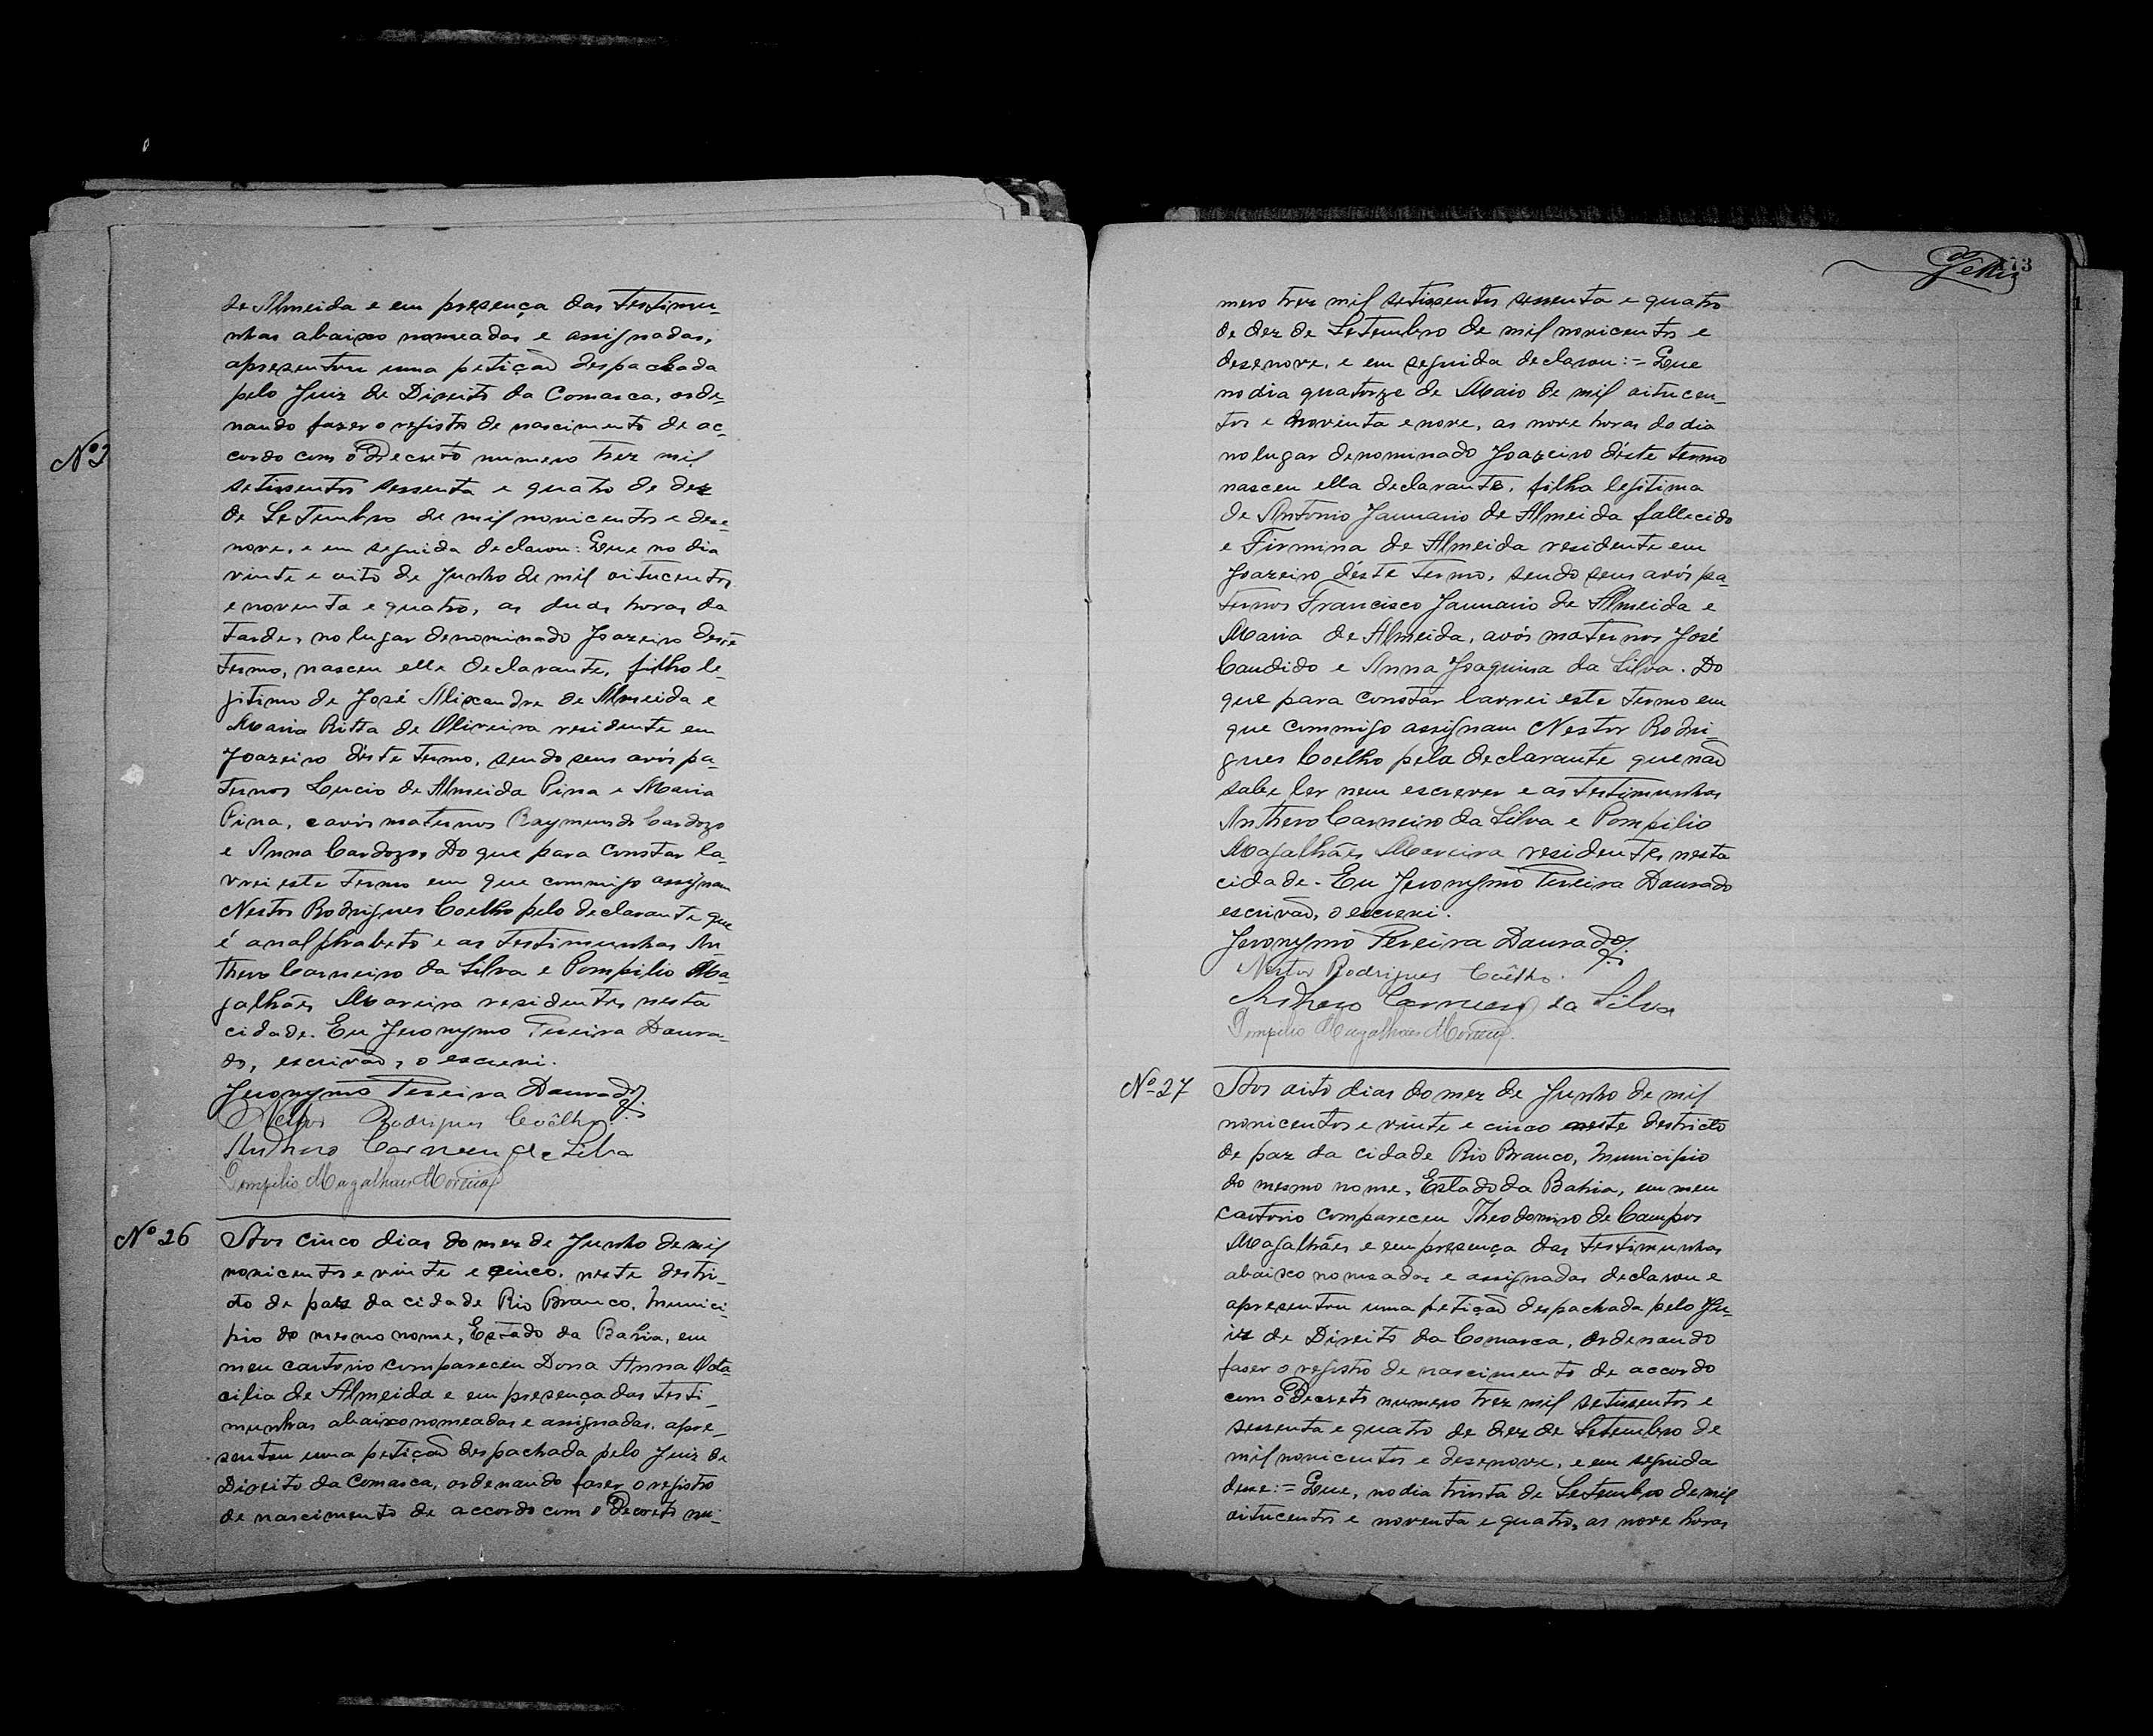 de Almeida e em presença das testimu-
nhas abaixo nomeadas e assignadas,
apresentou uma petição despachada
pelo Juiz de Direito da Comarca, orde-
nando fazer o registo de nascimento de ac-
cordo com o Decreto numero trez mil
Nº 2
setissentos sessenta e quatro de dez
de Setembro de mil novicentos e deze-
nove, e em seguida declarou: Que no dia
vinte e oito de Junho de mil oitucentos
e noventa e quatro, as duas horas da
tarde, no lugar denominado Joazeiro deste
termo, nasceu elle declarante, filho le-
gitimo de José Alixandre de Almeida e
Maria Ritta de Oliveira residente em
Joazeiro déste termo, sendo seus avós pa-
ternos Lucio de Almeida Pina e Maria
Pina, e avós maternos Raymundo Cardozo
e Anna Cardozo, Do que para constar la-
vrei este termo em que commigo assignam
Nestor Rodrigues Coelho pelo declarante que
é analphabeto e as testimunhas An-
thero Carneiro da Silva e Pompilio Ma-
galhães Moreira residentes nesta
cidade. Eu Jeronymo Pereira Doura-
do, escrivão, o escrevi.
Jeronymo Pereira Dourado
Nestor Rodrigues Coêlho
Anthero Carneiro da Silva
Pompilio Magalhães Moreira
Nº 26 Aos cinco dias do mez de Junho de mil
novicentos e vinte e cinco, neste destri-
cto de paz da cidade Rio Branco, Munici-
pio do mesmo nome, Estado da Bahia, em
meu cartorio compareceu Dona Anna Ota-
cilia de Almeida e em presença das testi-
munhas abaixo nomeadas e assignadas, apre-
sentou uma petição despachada pelo Juiz de
Direito da Comarca, ordenando faser o registro
de nascimento de accordo com o Decreto nu-
173
mero trez mil setissentos sessenta e quatro
de dez de Setembro de mil novicentos e
desenove, e em seguida declarou:= Que
no dia quatorze de Maio de mil oitucen-
tos e noventa e nove, as nove horas do dia
no lugar denominado Joazeiro déste termo
nasceu ella declarante, filha legitima
de Antonio Januario de Almeida fallecido
e Firmina de Almeida residente em
Joazeiro déste termo, sendo seus avós pa-
ternos Francisco Januario de Almeida e
Maria de Almeida, avós maternos José
Candido e Anna Joaquina da Silva. Do
que para constar lavrei este termo em
que commigo assignam Nestor Rodri-
gues Coelho pela declarante que não
sabe ler nem escrever e as testimunhas
Anthero Carneiro da Silva e Pompilio
Magalhães Moreira residentes nesta
cidade. Eu Jeronymo Pereira Dourado
escrivão, o escrevi.
Jeronymo Pereira Dourado
Nestor Rodrigues Coêlho.
Anthero Carneiro da Silva
Pompilio Magalhães Moreira
Nº 27 Aos oito dias do mez de Junho de mil
novicentos e vinte e cinco neste destricto
de paz da cidade Rio Branco, Municipio
do mesmo nome, Estado da Bahia, em meu
cartorio compareceu Theodomiro de Campos
Magalhães e em presença das testimunhas
abaixo nomeadas e assignadas declarou e
apresentou uma petição despachada pelo Ju-
iz de Direito da Comarca, ordenando
faser o registro de nascimento de accordo
com o Decreto numero trez mil setissentos e
sessenta e quatro de dez de Setembro de
mil novicentos e desenove, e em seguida
disse:= Que, no dia trinta de Setembro de mil
oitucentos e noventa e quatro, as nove horas